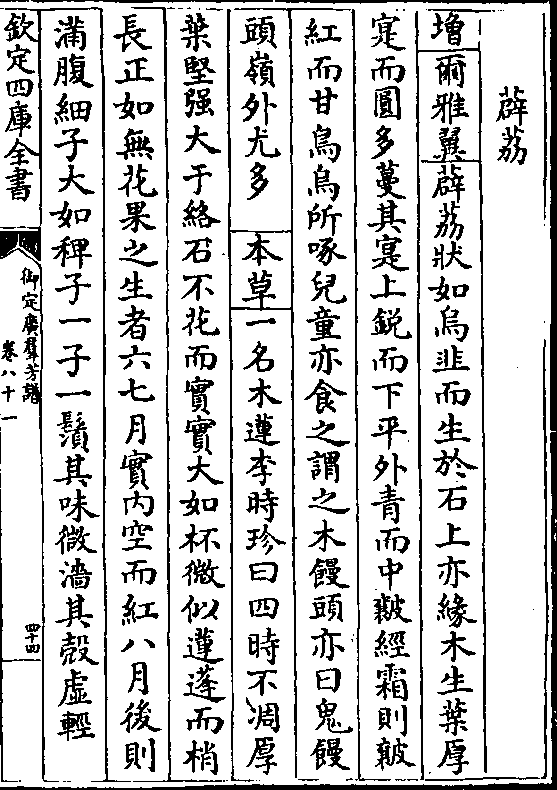 薜荔
增爾雅翼薜荔狀如烏韭而生於石上亦緣木生葉厚
寔而圓多蔓其寔上銳而下平外青而中皾經霜則皾
紅而甘鳥烏所啄兒童亦食之謂之木饅頭亦曰鬼饅
頭嶺外尤多 本草一名木蓮李時珍曰四時不凋厚
葉堅强大于絡石不花而實實大如杯微似蓮蓬而梢
長正如無花果之生者六七月實内空而紅八月後則
滿腹細子大如稗子一子一鬚其味微濇其殼虛輕
欽定四庫全書
御定廣羣芳譜
卷八十一
四十四